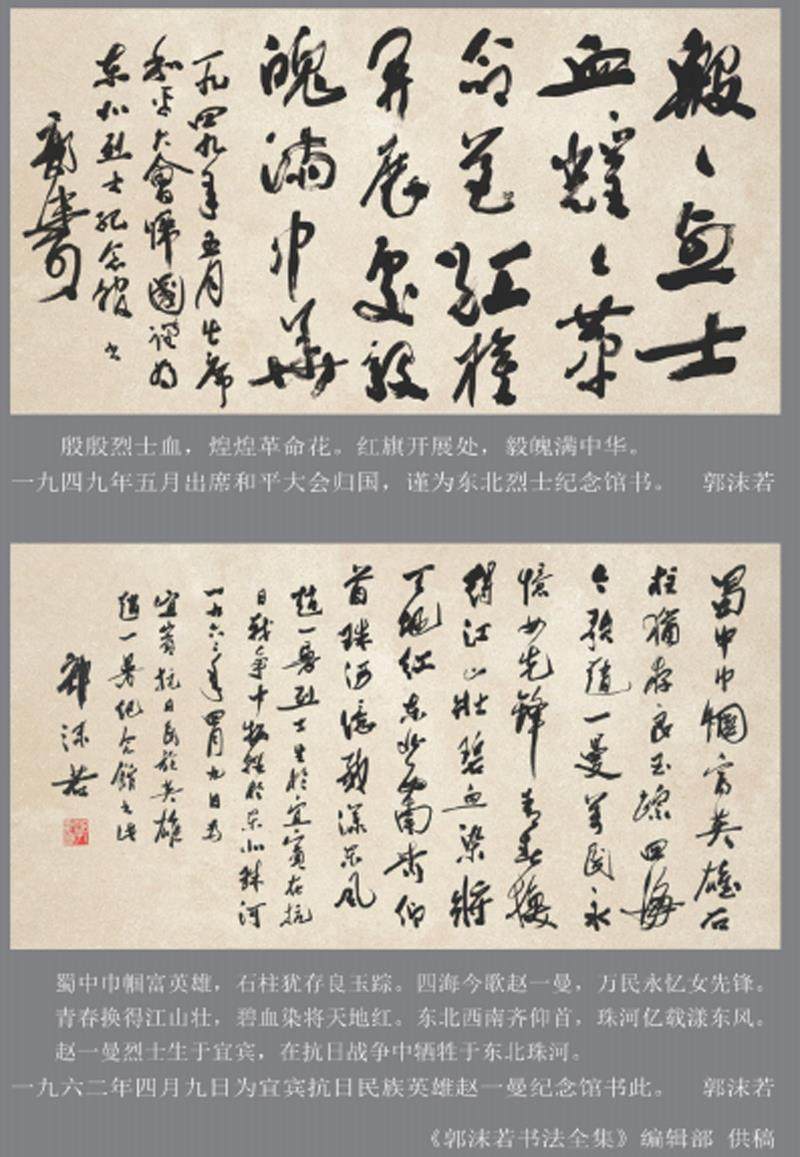 殷〻烈士
血耀〻革
命花红旗
开展处毅
魄满中华
一九四九年五月出席
和平大会归国谨为
东北烈士纪念馆书
郭沫若
殷殷烈士血，煌煌革命花。红旗开展处，毅魄满中华。
一九四九年五月出席和平大会归国，谨为东北烈士纪念馆书。 郭沫若
蜀中巾帼富英雄石
柱犹存良玉踪四海
今歌赵一曼万民永
忆女先锋青春换
得江山壮碧血染将
天地红东北西南齐仰
首珠河亿载漾东风
赵一曼烈士生于宜宾在抗
日战争中牺牲于东北珠河
一九六二年四月九日为
宜宾抗日民族英雄
赵一曼纪念馆书此
郭沫若
蜀中巾帼富英雄，石柱犹存良玉踪。四海今歌赵一曼，万民永忆女先锋。
青春换得江山壮，碧血染将天地红。东北西南齐仰首，珠河亿载漾东风。
赵一曼烈士生于宜宾，在抗日战争中牺牲于东北珠河。
一九六二年四月九日为宜宾抗日民族英雄赵一曼纪念馆书此。 郭沫若
《郭沫若书法全集》编辑部 供稿